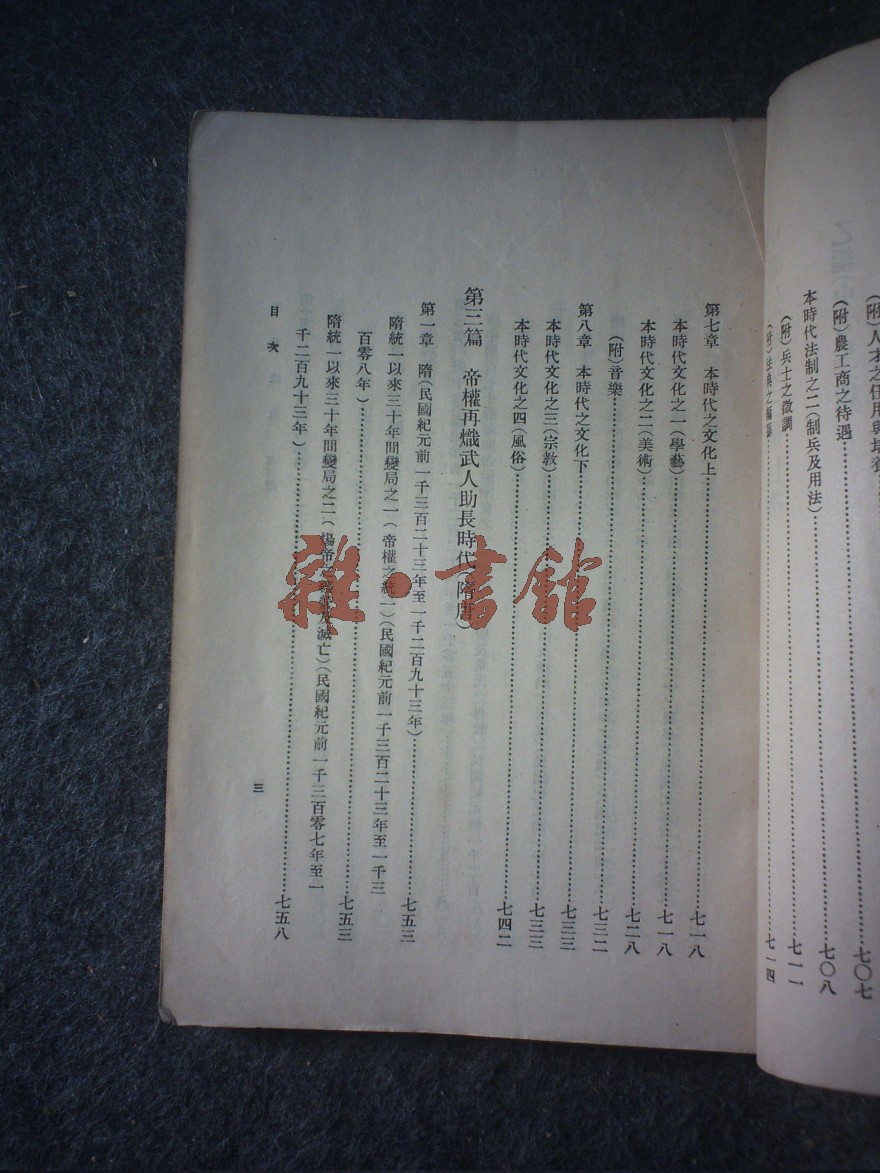 (附)農工商之待遇……七〇七
本時代法制之二(制兵及用法)……七〇八
(附)兵士之徵調……七一一
七一四
第七章 本時代之文化上……七一八
本時代文化之一(學藝)……七一八
本時代文化之二(美術)……七二八
(附)音樂……七三二
第八章 本時代之文化下……七三三
本時代文化之三(宗教)……七三三
本時代文化之四(風俗)……七四二
第三篇 帝權再熾武人助長時代(隋唐)
第一章 隋(民國紀元前一千三百二十三年至一千二百九十三年)……七五三
隋統一以來三十年間變局之一(帝權之統一)(民國紀元前一千三百二十三年至一千三
百零八年)……七五三
隋統一以來三十年間變局之二(煬帝 滅亡)(民國紀元前一千三百零七年至一
千二百九十三年)……七五八
目次
三
雜·書館